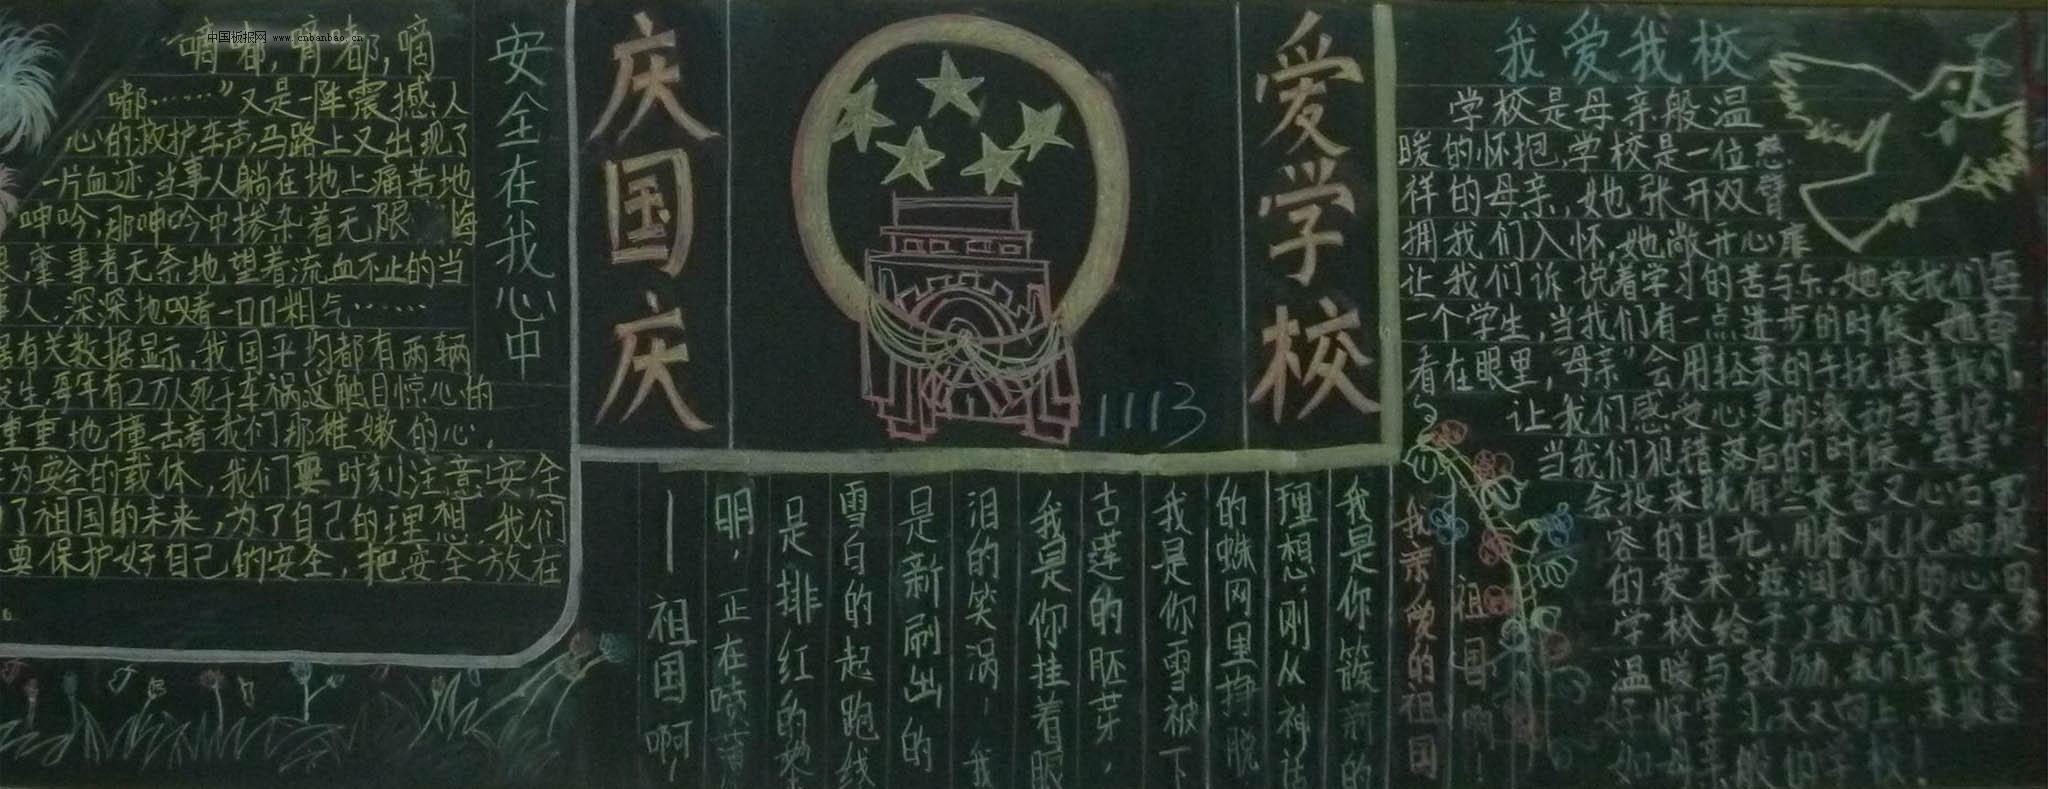 中国板报网 www.cnbanbao.cn
安全在我心中
嘟……”又是一阵震撼人
心的救护车声，马路上又出现了
一片血迹，当事人躺在地上痛苦地
呻吟，那呻吟中掺杂着无限
肇事者无奈地望着流血不止的当
事人，深深地叹着一口口粗气……
有关数据显示，我国平均都有两辆
发生，每年有2万人死于车祸，这触目惊心的
重重地撞击着我们那稚嫩的心，
为安全的载体，我们要时刻注意安全
了祖国的未来，为了自己的理想，我们
要保护好自己的安全，把安全放在
庆国庆
1113
爱学校
我是你簇新的
理想，刚从神话
的蛛网里挣脱
我是你雪被下
古莲的胚芽，
我是你挂着眼
泪的笑涡，我
是新刷出的
雪白的起跑线
是排红的黎
明，正在喷薄
——祖国啊，
祖国啊！
我亲爱的祖国
我爱我校
学校是母亲般温
暖的怀抱，学校是一位慈
祥的母亲，她张开双臂
拥我们入怀，她敞开心扉
让我们诉说着学习的苦与乐，她爱我们每
一个学生，当我们有一点进步的时候，她都
看在眼里，“母亲”会用轻柔的手抚摸着我们，
让我们感受心灵的激动与喜悦；
当我们犯错落后的时候
会投来既有些责备又心
容的目光，用春风化雨般
的爱来滋润我们的心田
学校给予了我们太多太多
温暖与鼓励，我们应该
好好学习，天天向上，来报答
如母亲般的学校！